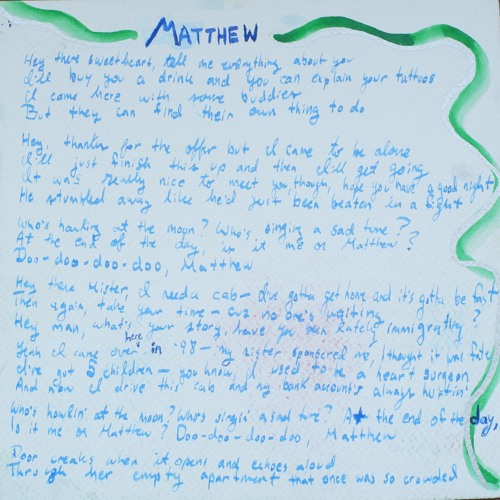 MATTHEW
Hey there sweetheart, tell me everything about you
I'll buy you a drink and you can explain your tattoos
I came here with some buddies
But they can find their own thing to do
Hey, thanks for the offer but I came to be alone
I'll just finish this up and then I'll get going
It was really nice to meet you, though, hope you have a good night
He stumbled away like he'd just been beaten in a fight
Who's howling at the moon? Who's singing a sad tune?
At the end of the day, is it me or Matthew?
Doo-doo-doo-doo, Matthew
Hey there Mister, I need a cab - I've gotta get home and it's gotta be fast
Then again, take your time - cuz no one's waiting
Hey man, what's your story, have you been lately immigrating?
Yeah I came over here in -98- my sister sponsored me, I thought it was fate
I've got 5 children - you know, I used to be a heart surgeon
And now I drive this cab and my bank account's always hurtin'
Who's howlin' at the moon? Who's singin' a sad tune? At the end of the day,
Is it me or Matthew? Doo-doo-doo-doo, Matthew
Door creaks when it opens and echoes aloud
Through her empty apartment that once was so crowded